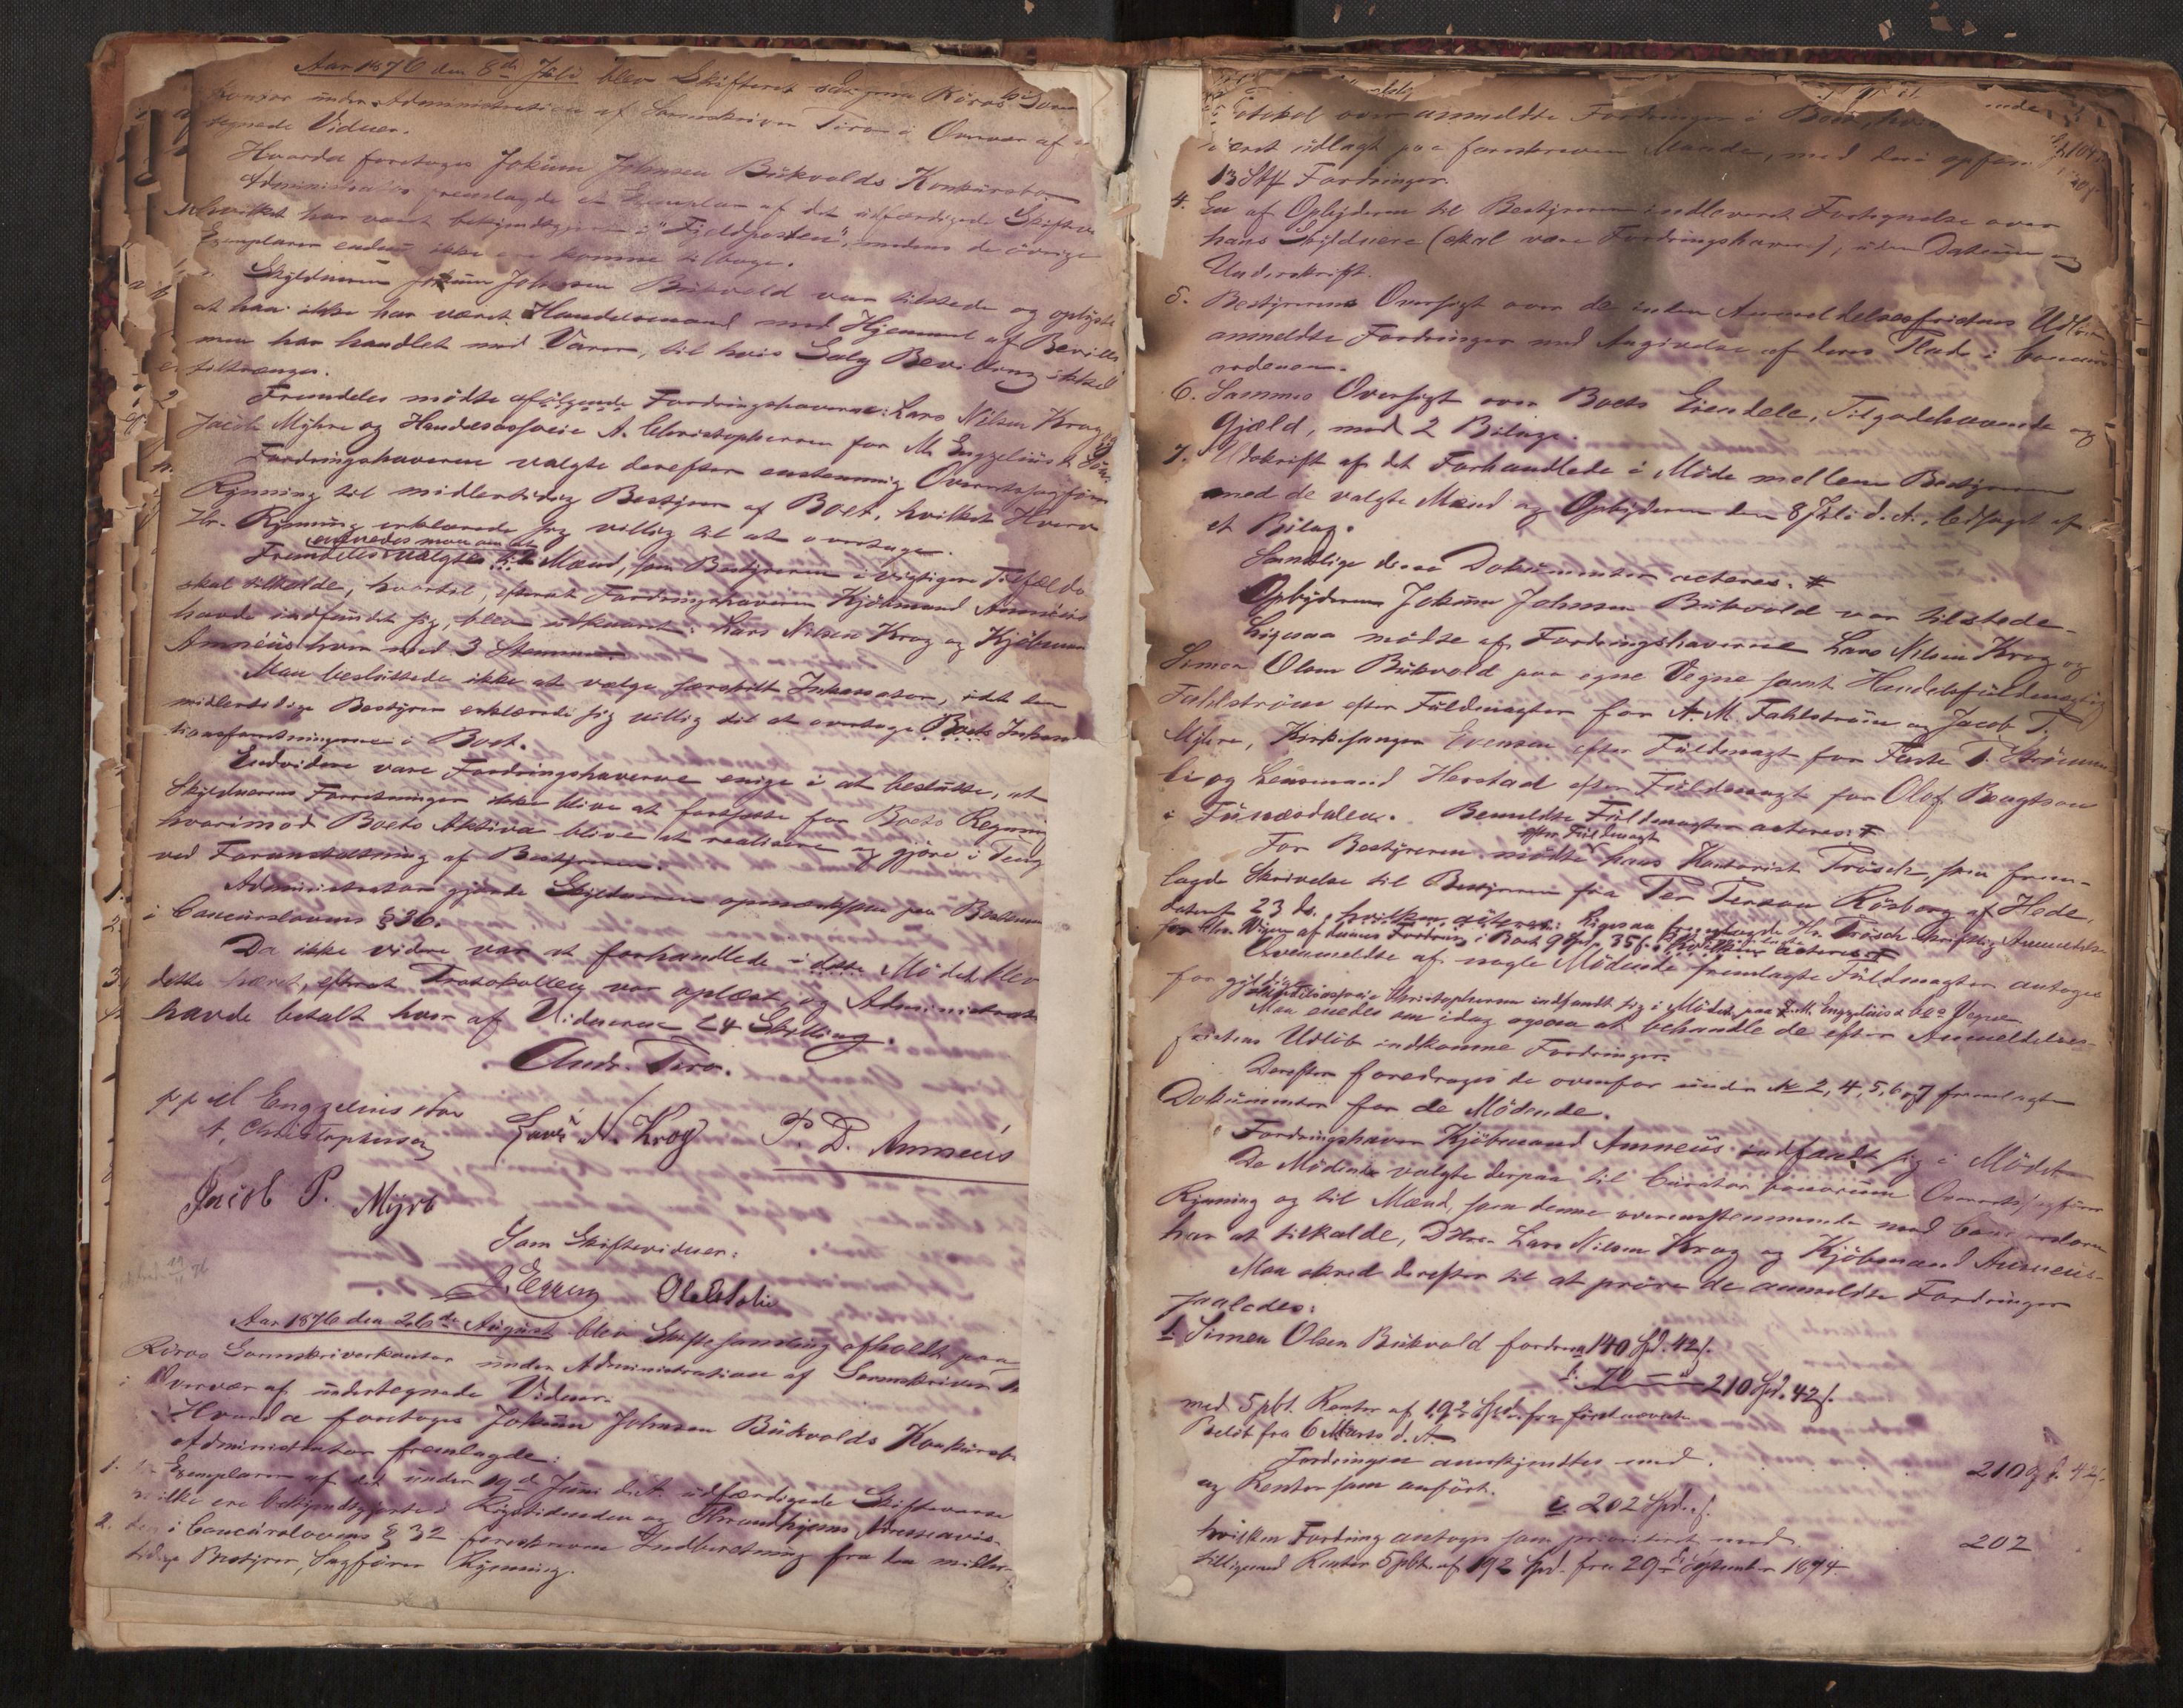 Aar 1876 den 8de Juli blev Skifteret sat paa Röros
kontor under Administration af Sorenskriver Tiro i Overvær af
tegnede Vidner.
Hvorda foretoges Jokum Johnsen Bukvolds Konkursbo
Administrator fremlagde en Exemplar af det udfærdigede Skifteva
hvilket har været bekjendtgjort i "Fjeldposten", medens de övrige
Exemplarer endnu ikke ere komne tilbage.
Skyldneren Jokum Johnsen Bukvold var tilstede og oplyste
at han ikke har været Handelsmand med Hjemmel af Bevilli
men har handlet med Varer, til hvis Salg Bevilling ikke
tiltrænges.
Fremdeles mödte afölgende Fordringshavere: Lars Nilsen Krog
Jacob Myhre og Handelsassocie A. Christophersen for M. Engzelius &
Fordringshaverne valgte derefter enstemmig Overretssagförer
Rynning til midlertidig Bestyrer af Boet, hvilket Hverv
Hr. Rynning erklærede sig villig til at overtage.
enedes man om at
Fremdeles valgtes til 2 Mænd, som Bestyreren i vigtigere Tilfælde
skal tilkalde, hvortil, efterat Fordringshaveren Kjöbmand Amneus
havde indfundet sig, blev udkaaret: Lars Nilsen Krog og Kjöbman
Amnéus hver med 3 Stemmer.
Man besluttede ikke at vælge særskilt Inkassator, idet den
midlertidige Bestyrer erklærede sig villig til at overtage Boets Inkassa
tionsforretningerne i Boet.
Endvidere vare Fordringshaverne enige i at beslutte, at
Skyldnerens Forretninger ikke blive at fortsætte for Boets Regning
hvorimod Boets Aktiva blive at realisere og gjöre i Penge
ved Foranstaltning af Bestyreren.
Administrator gjorde Skyldneren opmærksom paa Bestemm
i Concurslovens § 36.
Da ikke videre var at forhandlede i dette Mödet blev
dette hævet, efterat Protokollen var oplæst, og Administrat
havde betalt hver af Vidnerne 24 Skilling.
Andr. Tiro.
pp M Engzelius & Son
A. Christophersen Lars N. Krog P. D. Amnéus
Jacob P. Myre
Som Skiftevidner:
J. Eggen
Aar 1876 den 26de August blev Skiftesamling afholdt paa
Röros Sorenskriverkontor under Administration af Sorenskriver
i Overvær af undertegnede Vidner.
Hvorda foretoges Jokum Johnsen Bukvolds Konkursbo
Administrator fremlagde:
1. Exemplarer af det under 19de Juni d. A. udfærdigede Skiftevarsel
hvilke ere bekjendtgjorte i Rigstidenden og Throndhjems Adresseavis.
2. den i Concurslovens § 32 foreskrevne Indberetning fra den midler-
tidige Bestyrer, Sagförer Rynning.
Protokol over anmeldte Fordringer i Boet,
været udlagt paa foreskreven Maade, med deri opför
13 Stk Fordringer.
4. En af Opbyderen til Bestyreren indleveret Fortegnelse over
hans Skyldnere (skal være Fordringshavere), uden Datum og
Underskrift.
5. Bestyrerens Oversigt over de inden Anmeldelsesfristens Udlöb
anmeldte Fordringer med Angivelse af deres Plads i Concurs
ordenen.
6. Sammes Oversigt over Boets Eiendele, Tilgodehavende og
Gjæld, med 2 Bilage.
7. Udskrift af det Forhandlede i Möde mellem Bestyreren
med de valgte Mænd og Opbyderen den 8 Juli d. A., ledsaget af
et Bilag.
Samtlige disse Dokumenter acteres.
Opbyderen Jokum Johnsen Bukvold var tilstede.
Ligesaa mödte af Fordringshaverne Lars Nilsen Krog og
Simen Olsen Bukvold paa egne Vegne samt Handelsfuldmægtig
Fahlström efter Fuldmagter for A. M. Fahlström og Jacob P.
Myhre, Kirkesanger Evensen efter Fuldmagt for Peder T. Strömm
li og Lensmand Herstad efter Fuldmagt for Olof Bengtson
i Funæsdalen. Bemeldte Fuldmagter acteres.
efter Fuldmagt
For Bestyreren mödte hans Kontorist Trösch, som frem-
lagde Skrivelse til Bestyreren fra Per Person Rösberg af Hede,
dateret 23 ds., hvilken acteres. Ligesaa fremlagde Hr. Trösch skriftlig Anmeldelse
Ovenmeldte af nogle Mödende fremlagte Fuldmagter antoges
for gyldige.
Handelsassocie Christophersen indfandt sig i Mödet paa M. Engzelius & Co.s Vegne.
Man enedes om idag ogsaa at behandle de efter Anmeldelses-
fristens Udlöb indkomne Fordringer.
Derefter foredroges de ovenfor under No 2, 4, 5, 6 og 7 fremlagte
Dokumenter for de Mödende.
Fordringshaver Kjöbmand Amneus indfandt sig i Mödet.
De Mödende valgte derpaa til Curator bonorum Overretssagförer
Rynning og til Mænd, som denne overensstemmende med Concursloven
har at tilkalde, DHrr. Lars Nilsen Krog og Kjöbmand Amneus.
Man skred derefter til at pröve de anmeldte Fordringer
saaledes:
1. Simen Olsen Bukvold fordrer 140 Spd. 42 s.
70 — 210 Spd. 42 s.
med 5 pCt. Renter af 192 Spd. fra förstnævnte
Belöb fra 6 Marts d. A.
Fordringen anerkjendtes med 210 42
og Renter som anfört.
i 202 Spd.
hvilken Fordring antoges som prioriteret med 202
tilligemed Renter 5 pCt. af 192 Spd. fra 29de September 1874